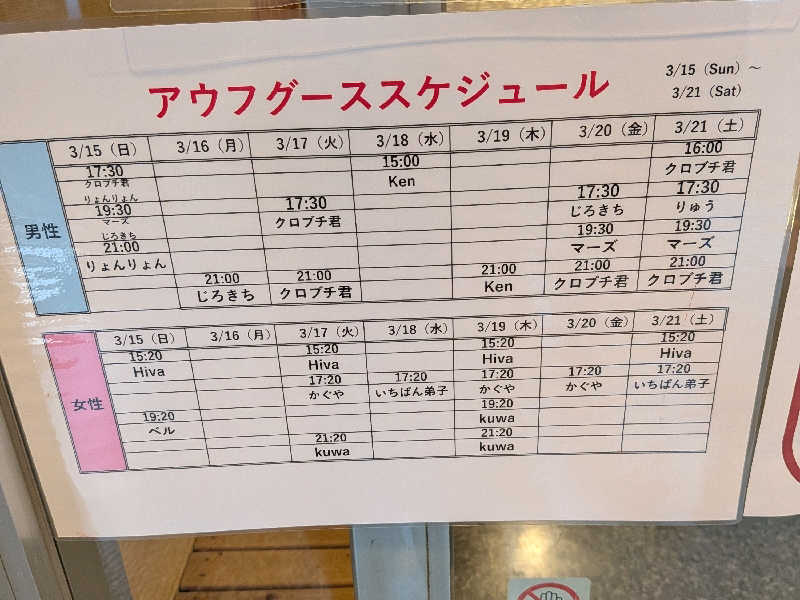 アウフグーススケジュール
3/15（Sun）～
3/21（Sat）
男性
3/15（日） 3/16（月） 3/17（火） 3/18（水） 3/19（木） 3/20（金） 3/21（土）
17:30 15:00 16:00
クロブチ君 Ken クロブチ君
りょんりょん
19:30 17:30 17:30 17:30
マーズ クロブチ君 じろきち りゅう
じろきち
21:00 19:30 19:30
りょんりょん マーズ マーズ
21:00 21:00 21:00 21:00 21:00
じろきち クロブチ君 Ken クロブチ君 クロブチ君
女性
3/15（日） 3/16（月） 3/17（火） 3/18（水） 3/19（木） 3/20（金） 3/21（土）
15:20 15:20 15:20 15:20
Hiva Hiva Hiva Hiva
17:20 17:20 17:20 17:20 17:20
かぐや いちばん弟子 かぐや かぐや いちばん弟子
19:20 19:20
ベル kuwa
21:20 21:20
kuwa kuwa